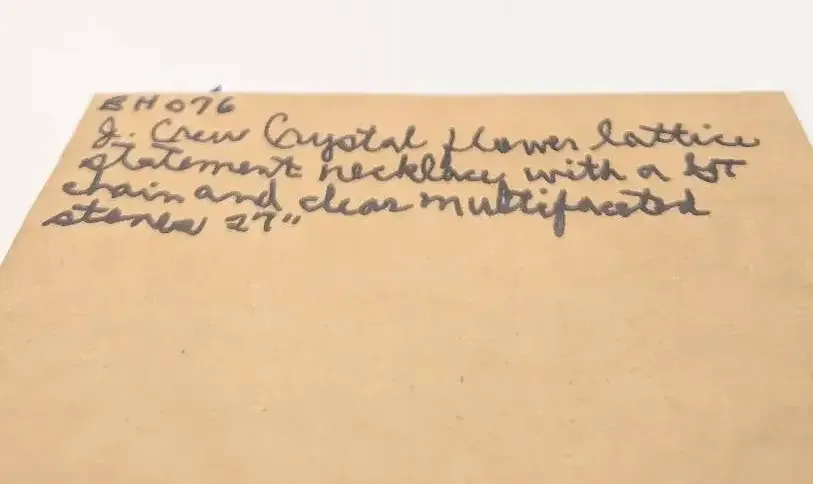 EH076
J. Crew Crystal flower lattice
statement necklace with a GT
chain and clear multifaceted
stones 27"